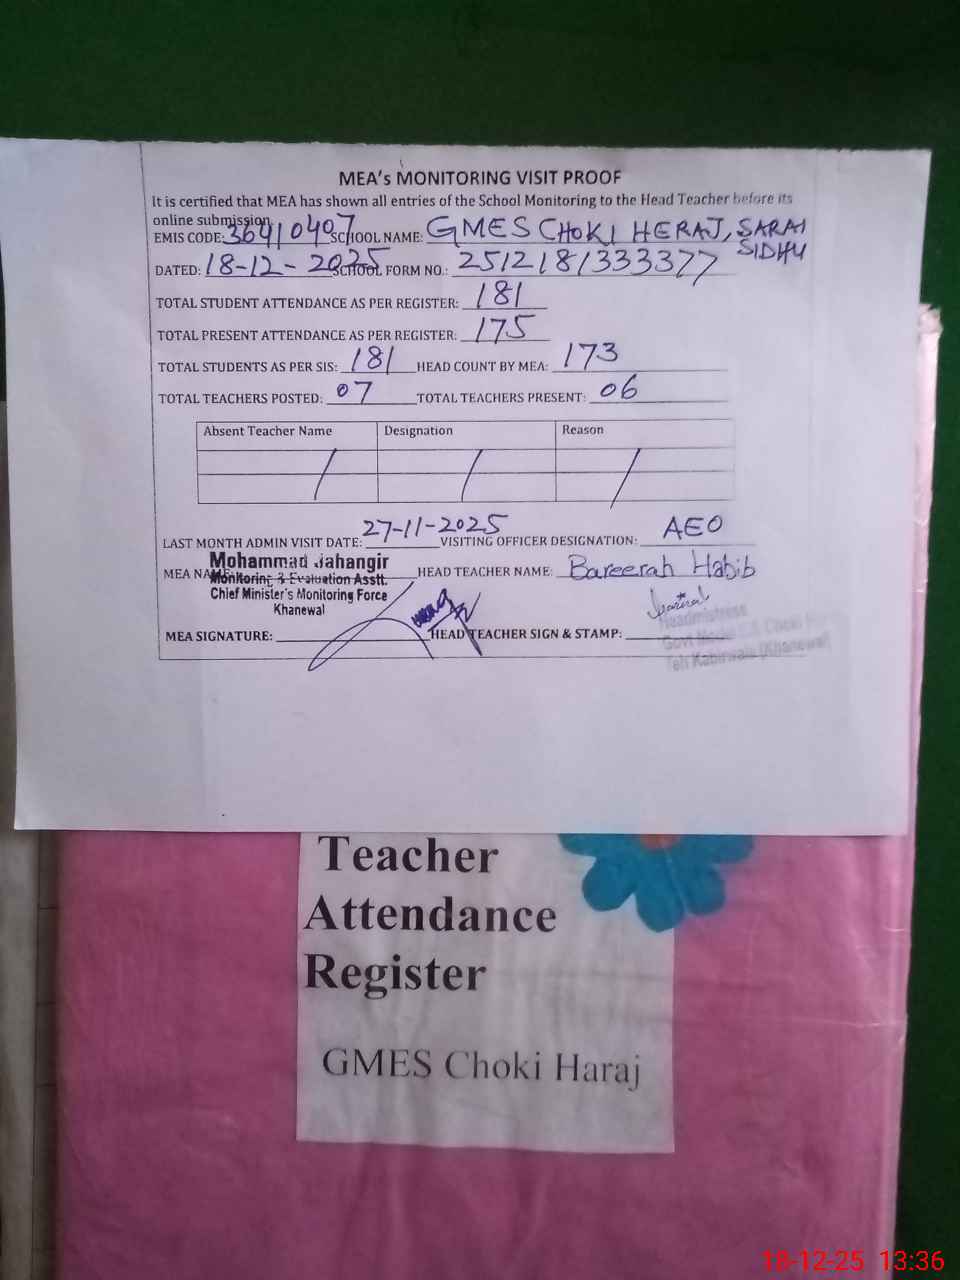 MEA's MONITORING VISIT PROOF
It is certified that MEA has shown all entries of the School Monitoring to the Head Teacher before its
online submission
EMIS CODE: 36410407 SCHOOL NAME: GMES CHOKI HERAJ, SARAI
SIDHU
DATED: 18-12-2025 SCHOOL FORM NO.: 2512181333377
TOTAL STUDENT ATTENDANCE AS PER REGISTER: 181
TOTAL PRESENT ATTENDANCE AS PER REGISTER: 175
TOTAL STUDENTS AS PER SIS: 181 HEAD COUNT BY MEA: 173
TOTAL TEACHERS POSTED: 07 TOTAL TEACHERS PRESENT: 06
Absent Teacher Name Designation Reason
/ / /
LAST MONTH ADMIN VISIT DATE: 27-11-2025 VISITING OFFICER DESIGNATION: AEO
Mohammad Jahangir
MEA NAME: Monitoring & Evaluation Asstt. HEAD TEACHER NAME: Bareerah Habib
Chief Minister's Monitoring Force
Khanewal
MEA SIGNATURE: HEAD TEACHER SIGN & STAMP:
Headmistress
Govt Model E/S Choki
Teh Kabirwala (Khanewal)
Teacher
Attendance
Register
GMES Choki Haraj
18-12-25 13:36